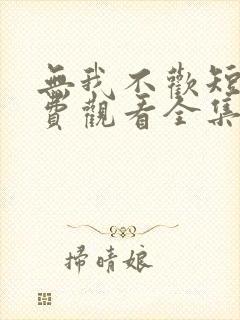 無我不歡短
費觀看全集
掃晴娘